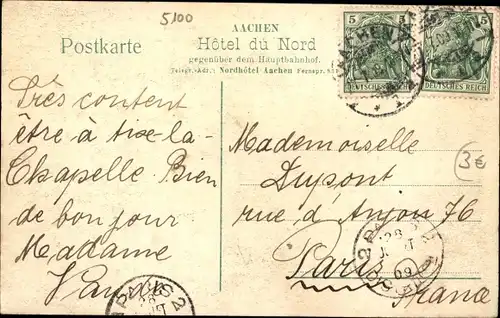 5100
AACHEN
Postkarte
Hôtel du Nord
gegenüber dem Hauptbahnhof.
Telegr.-Adr.: Nordhôtel Aachen Fernspr.
5
5
AACHEN
DEUTSCHES REICH
DEUTSCHES REICH
Très content
être à Aix-la-
Chapelle Bien
de bonjour
Madame
Mademoiselle
Dupont
rue d'Anjou 76
Paris
France
3€